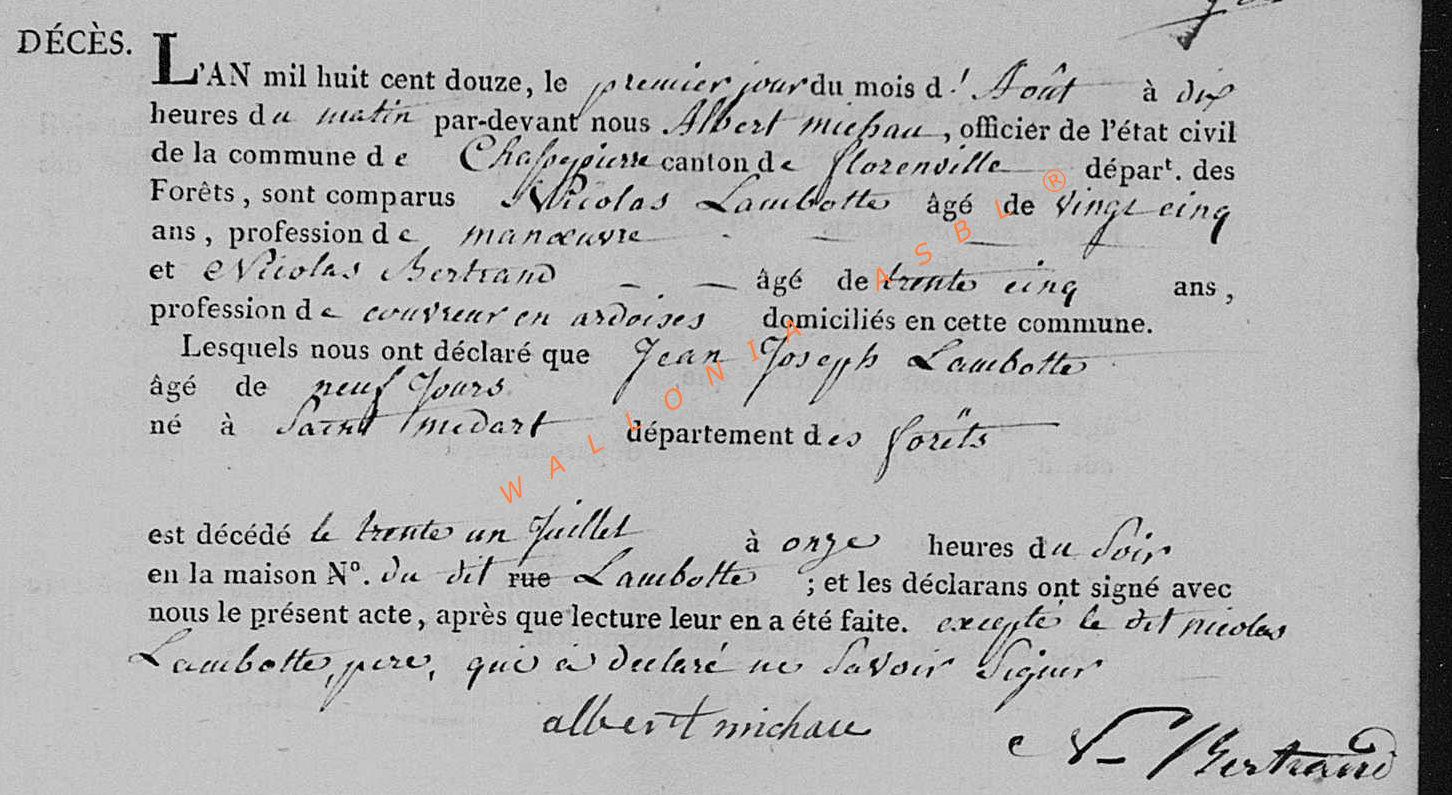 DÉCÈS. L'AN mil huit cent douze, le premier jour du mois d' Août à dix
heures du matin par-devant nous Albert michau, officier de l'état civil
de la commune de Chassepierre canton de florenville départ. des
Forêts, sont comparus Nicolas Lambotte âgé de vingt cinq
ans, profession de manœuvre
et Nicolas Bertrand âgé de trente cinq ans,
profession de couvreur en ardoises domiciliés en cette commune.
Lesquels nous ont déclaré que Jean Joseph Lambotte
âgé de neuf Jours
né à Saint medart département des forêts
est décédé le trente un Juillet à onze heures du Soir
en la maison N°. du dit rue Lambotte ; et les déclarans ont signé avec
nous le présent acte, après que lecture leur en a été faite. excepté le dit nicolas
Lambotte, pere, qui a declaré ne Savoir Signer
albert michau
N Bertrand
WALLONIA ASBL ®